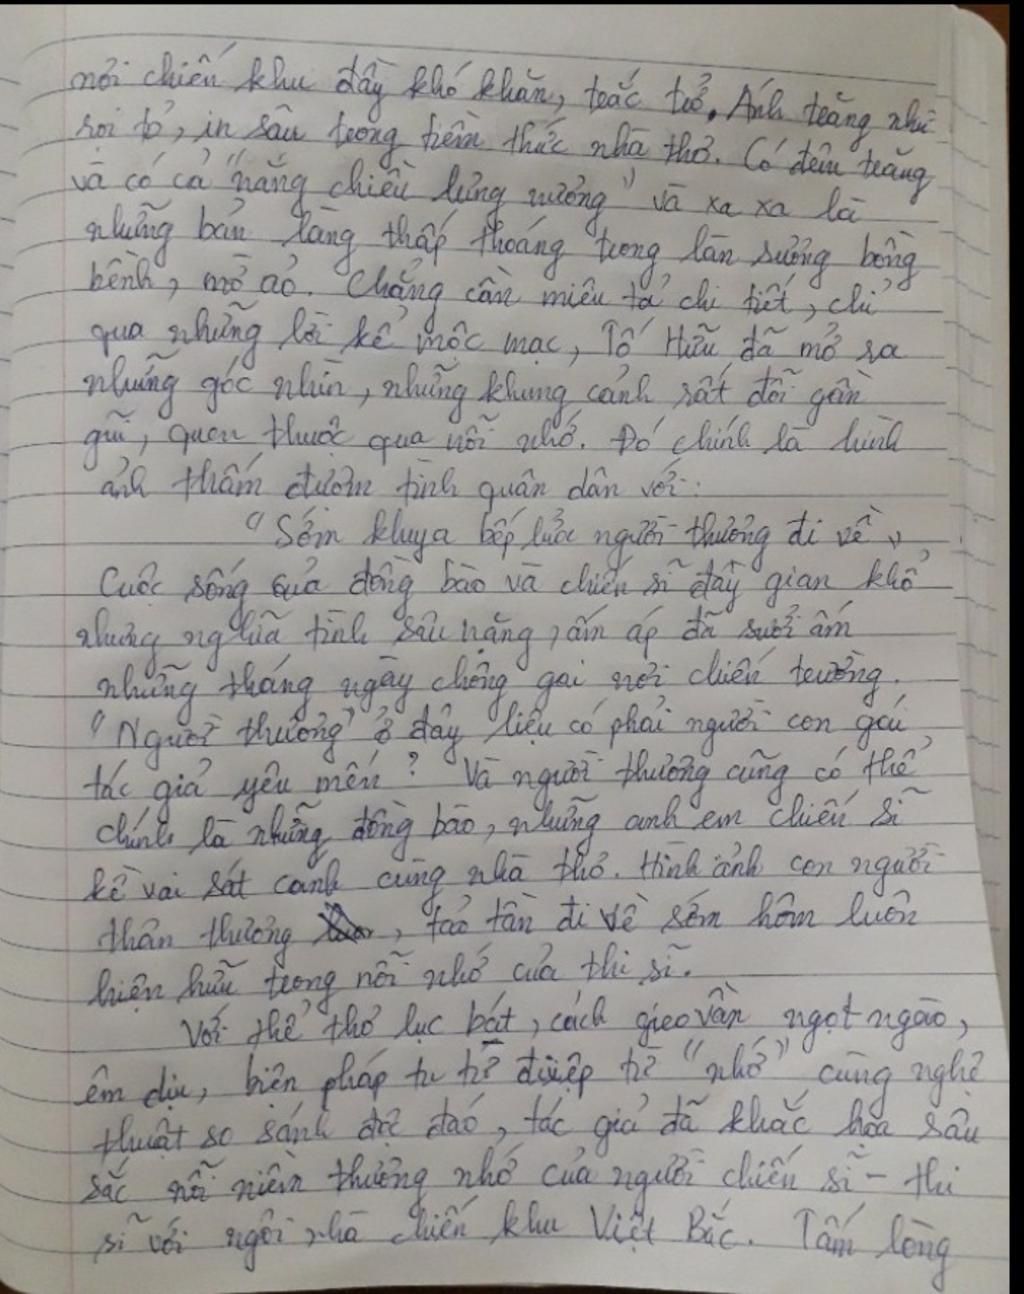 nơi chiến khu đầy khó khăn, trắc trở. Ánh trăng như
soi tỏ, in sâu trong tiềm thức nhà thơ. Có đêm trăng
và có cả "nắng chiều lưng nương" và xa xa là
những bản làng thấp thoáng trong làn sương bồng
bềnh, mờ ảo. Chẳng cần miêu tả chi tiết, chỉ
qua những lời kể mộc mạc, Tố Hữu đã mở ra
những góc nhìn, những khung cảnh rất đỗi gần
gũi, quen thuộc qua nỗi nhớ. Đó chính là hình
ảnh thấm đượm tình quân dân với:
"Sớm khuya bếp lửa người thương đi về"
Cuộc sống của đồng bào và chiến sĩ đầy gian khổ
nhưng nghĩa tình sâu nặng, ấm áp đã sưởi ấm
những tháng ngày chông gai nơi chiến trường.
"Người thương" ở đây liệu có phải người con gái
tác giả yêu mến? Và người thương cũng có thể
chính là những đồng bào, những anh em chiến sĩ
kề vai sát cánh cùng nhà thơ. Hình ảnh con người
thân thương, tảo tần đi về sớm hôm luôn
hiện hữu trong nỗi nhớ của thi sĩ.
Với thể thơ lục bát, cách gieo vần ngọt ngào,
êm dịu, biện pháp tu từ điệp từ "nhớ" cùng nghệ
thuật so sánh độc đáo, tác giả đã khắc họa sâu
sắc nỗi niềm thương nhớ của người chiến sĩ - thi
sĩ với ngôi nhà chiến khu Việt Bắc. Tấm lòng